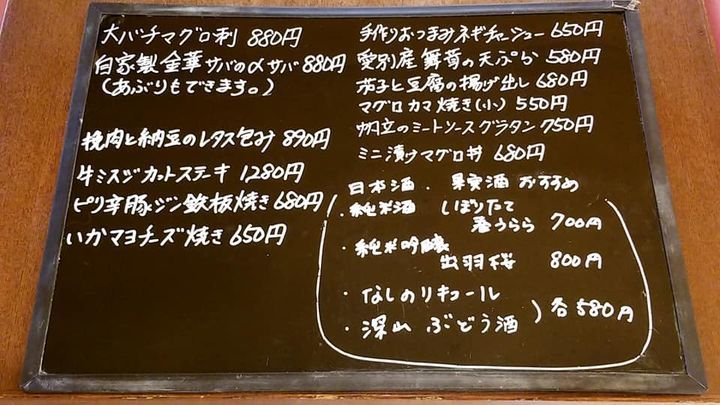 大バチマグロ刺 880円
自家製金華サバの〆サバ 880円
(あぶりもできます。)
挽肉と納豆のレタス包み 890円
牛ミスジカットステーキ 1280円
ピリ辛豚ジン鉄板焼き 680円
いかマヨチーズ焼き 650円
手作りおつまみネギチャーシュー 650円
愛別産 舞茸の天ぷら 580円
茄子と豆腐の揚げ出し 680円
マグロカマ焼き(小) 550円
帆立のミートソースグラタン 750円
ミニ漬けマグロ丼 680円
日本酒・果実酒おすすめ
・純米酒 しぼりたて
春うらら 700円
・純米吟醸
出羽桜 800円
・なしのリキュール
・深山ぶどう酒 ) 各580円